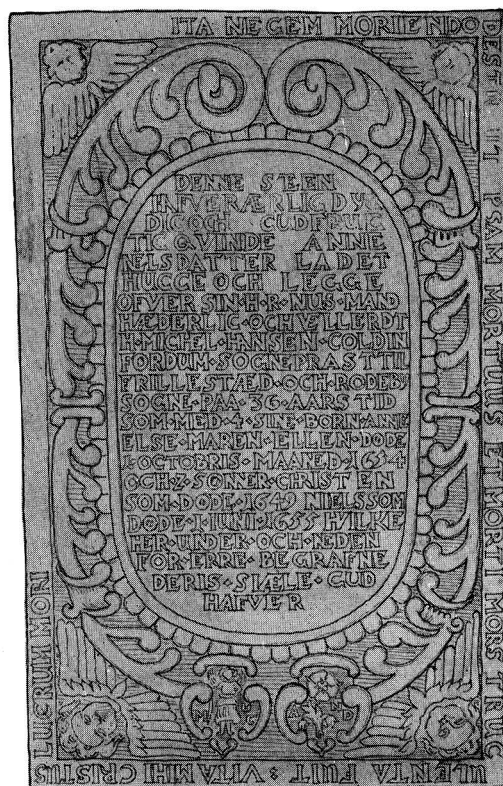 ITA NEGEM MORIENDO
PAM MORTUUS ET MORTI MORS TRUC
ULENTA FUIT : VITA MHI CRISTUS
LUCRUM MORI
DENNE STEEN
INFVERÆRLIGDY
DIGOCH GUDFRUIC
TIG QVINDE ANNE
NELSDATTER LADET
HUGGE OCH LEGGE
OFVER SIN·H·R·NUS·MAND
HÆDERLIG·OCH·VELLERDT
H·MICHEL·HANSEN·COLDIN
FORDUM·SOGNEPRÆSTTIL
FRILLESTÆD·OCH·RODEBY
SOGNE·PAA·36·AARS TID
SOM·MED·4·SINE·BORN·ANNE
ELSE·MAREN·ELLEN·DØDE
1·OCTOBRIS·MAANED·1654
OCH·2·SØNNER·CHRISTEN
SOM·DØDE·1649 NIELSSOM
DØDE·1·IUNI·1655 HVILKE
HER·UNDER·OCH·NEDEN
FOR·ERRE·BEGRAFNE
DERIS·SIÆLE·GUD
HAFVER